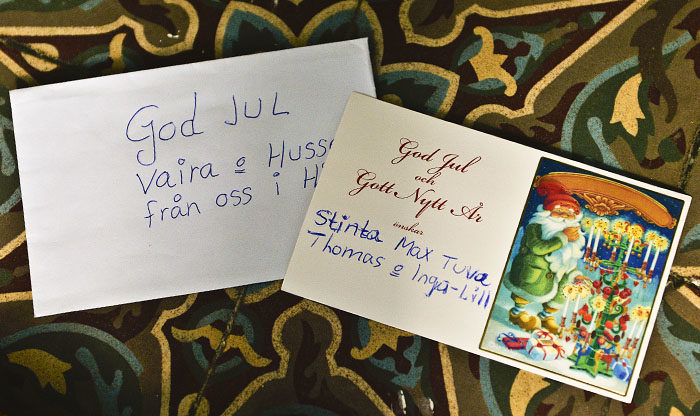 God JUL
Vaira o Huss
från oss i H
God Jul
och
Gott Nytt År
önskar
Stinta Max Tuva
Thomas o Inga-Lill